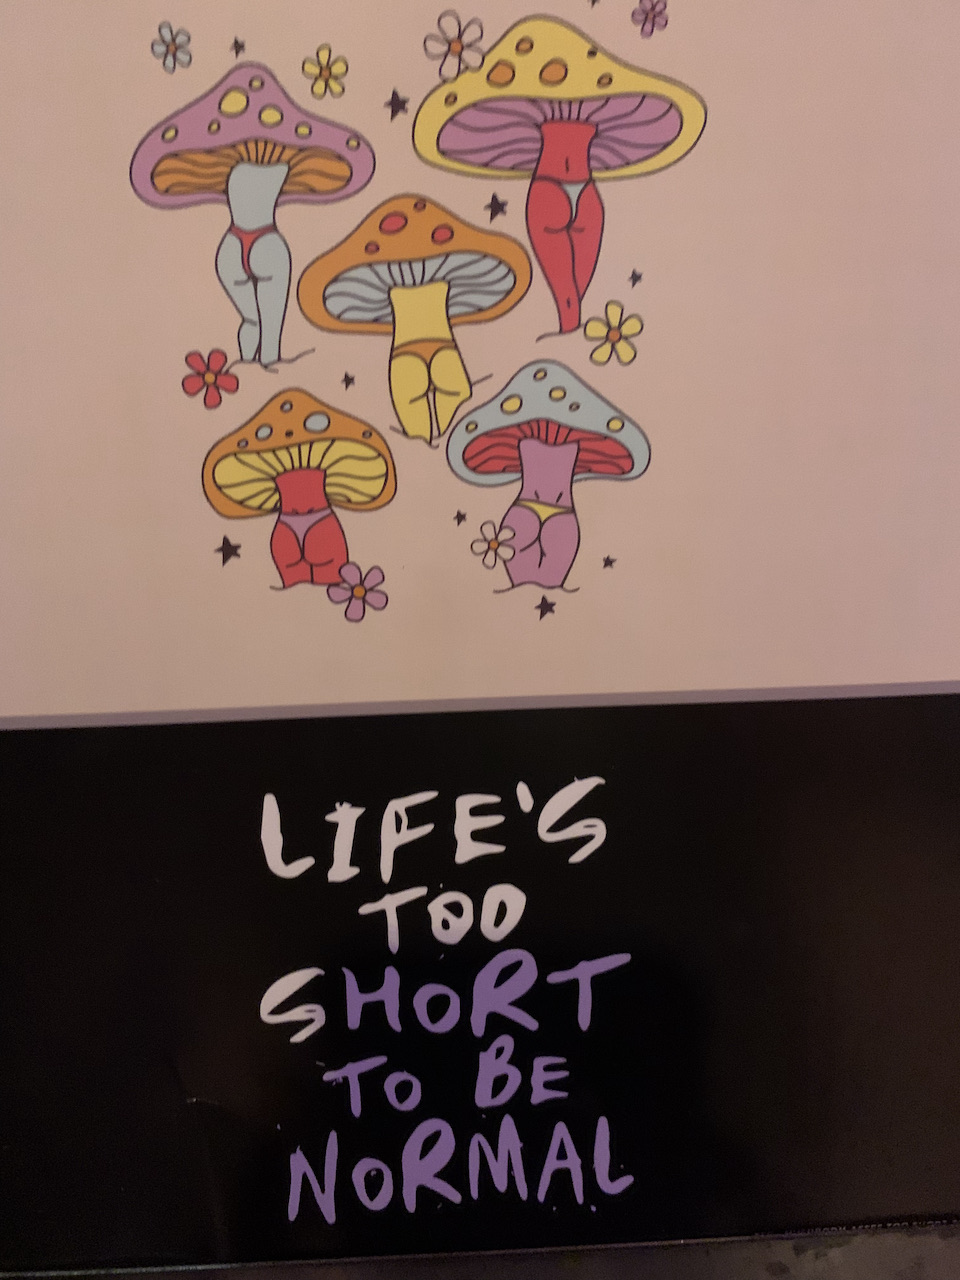 LIFE'S
TOO
SHORT
TO BE
NORMAL